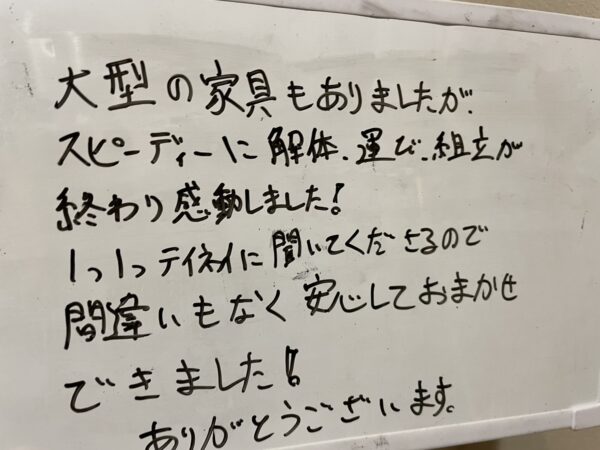 大型の家具もありましたが、
スピーディーに解体、運び、組立が
終わり感動しました!
1つ1つテイネイに聞いてくださるので
間違いもなく安心しておまかせ
できました!
ありがとうございます。